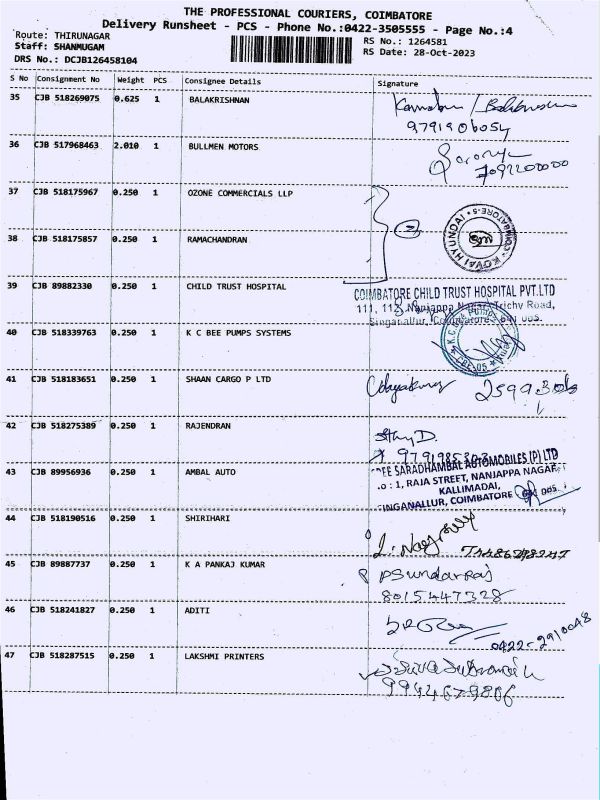 THE PROFESSIONAL COURIERS, COIMBATORE
Delivery Runsheet - PCS - Phone No.:0422-3505555 - Page No.:4
Route: THIRUNAGAR
Staff: SHANMUGAM
DRS No.: DCJB126458104
RS No.: 1264581
RS Date: 28-Oct-2023
S No Consignment No Weight PCS Consignee Details Signature
35 CJB 518269075 0.625 1 BALAKRISHNAN
9791906054
36 CJB 517968463 2.010 1 BULLMEN MOTORS
37 CJB 518175967 0.250 1 OZONE COMMERCIALS LLP
2
KOVAI HYUNDAI * COIMBATORE-5 *
38 CJB 518175857 0.250 1 RAMACHANDRAN
39 CJB 89882330 0.250 1 CHILD TRUST HOSPITAL
COIMBATORE CHILD TRUST HOSPITAL PVT.LTD
111, Nanjappa Nagar, Trichy Road,
Singanallur, Coimbatore - 641 005.
40 CJB 518339763 0.250 1 K C BEE PUMPS SYSTEMS
41 CJB 518183651 0.250 1 SHAAN CARGO P LTD
Udayakumar
42 CJB 518275389 0.250 1 RAJENDRAN
43 CJB 89956936 0.250 1 AMBAL AUTO
SARADHAMBAL AUTOMOBILES (P) LTD
.o : 1, RAJA STREET, NANJAPPA NAGAR,
KALLIMADAI,
INGANALLUR, COIMBATORE 005.
44 CJB 518190516 0.250 1 SHIRIHARI
45 CJB 89887737 0.250 1 K A PANKAJ KUMAR
P Sundarraj
8015447328
46 CJB 518241827 0.250 1 ADITI
0422-2910048
47 CJB 518287515 0.250 1 LAKSHMI PRINTERS
9944679806